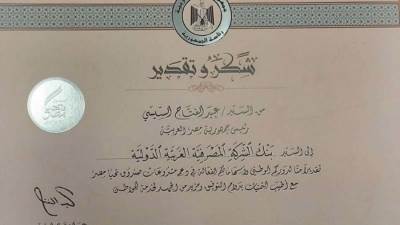 رئاسة الجمهورية
شكر وتقدير
من السيد / عبد الفتاح السيسي
رئيس جمهورية مصر العربية
إلى السيد بنك الشركة المصرفية العربية الدولية
تقديراً منا لدوركم الوطني ولإسهاماتكم الفعالة في دعم مشروعات صندوق تحيا مصر
مع أطيب التمنيات بدوام التوفيق ومزيد من الجهد لخدمة الوطن
تحيا مصر